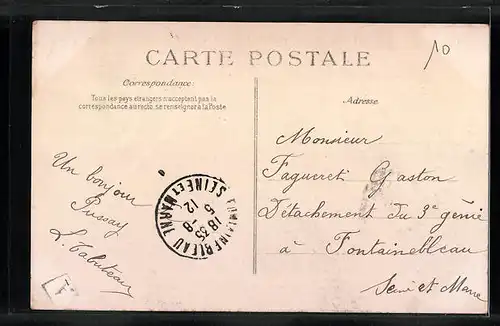 CARTE POSTALE
10
Correspondance:
Tous les pays étrangers n'acceptent pas la
correspondance au recto, se renseigner à la Poste
Adresse
Un bonjour
Pussay
L. Tabuteau
FONTAINEBLEAU
18 35
5 -8
12
SEINE ET MARNE
Monsieur
Gaston
Détachement du 3e génie
à Fontainebleau
Seine et Marne